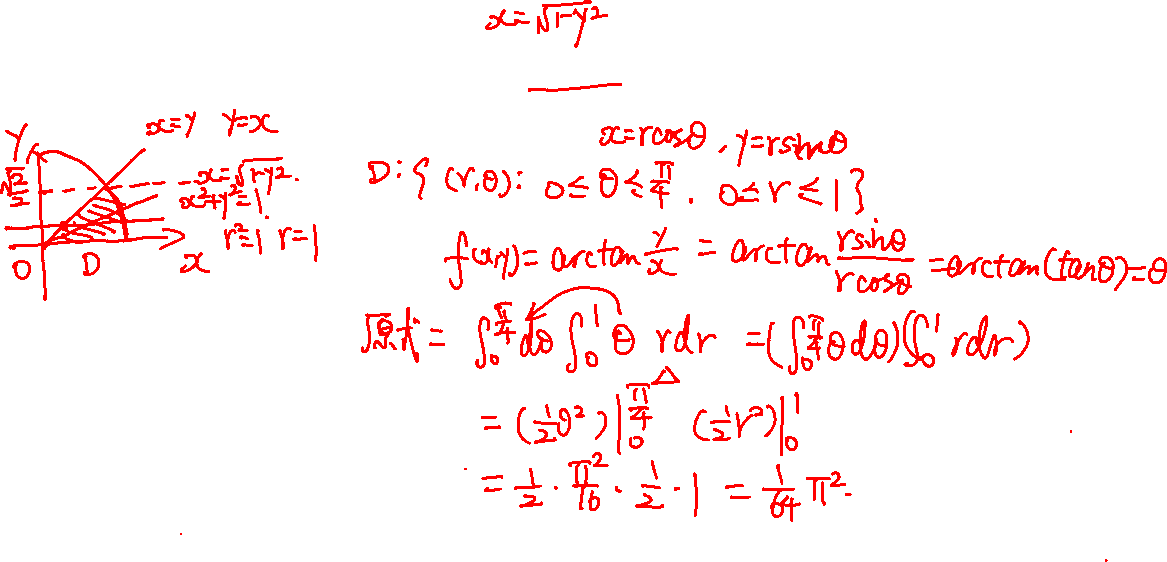 x=√1-y²
x=y y=x
y
√2/2
x=√1-y².
x²+y²=1
r²=1 r=1
O D x
x=rcosθ, y=rsinθ
D:{(r,θ): 0≤θ≤π/4. 0≤r≤1}
f(x,y)=arctan y/x = arctan rsinθ/rcosθ =arctan(tanθ)=θ
原式= ∫₀^(π/4) dθ ∫₀^1 θ rdr =(∫₀^(π/4) θdθ)(∫₀^1 rdr)
=(1/2θ²)|₀^(π/4) (1/2r²)|₀^1
=1/2·π²/16·1/2·1 = 1/64 π².